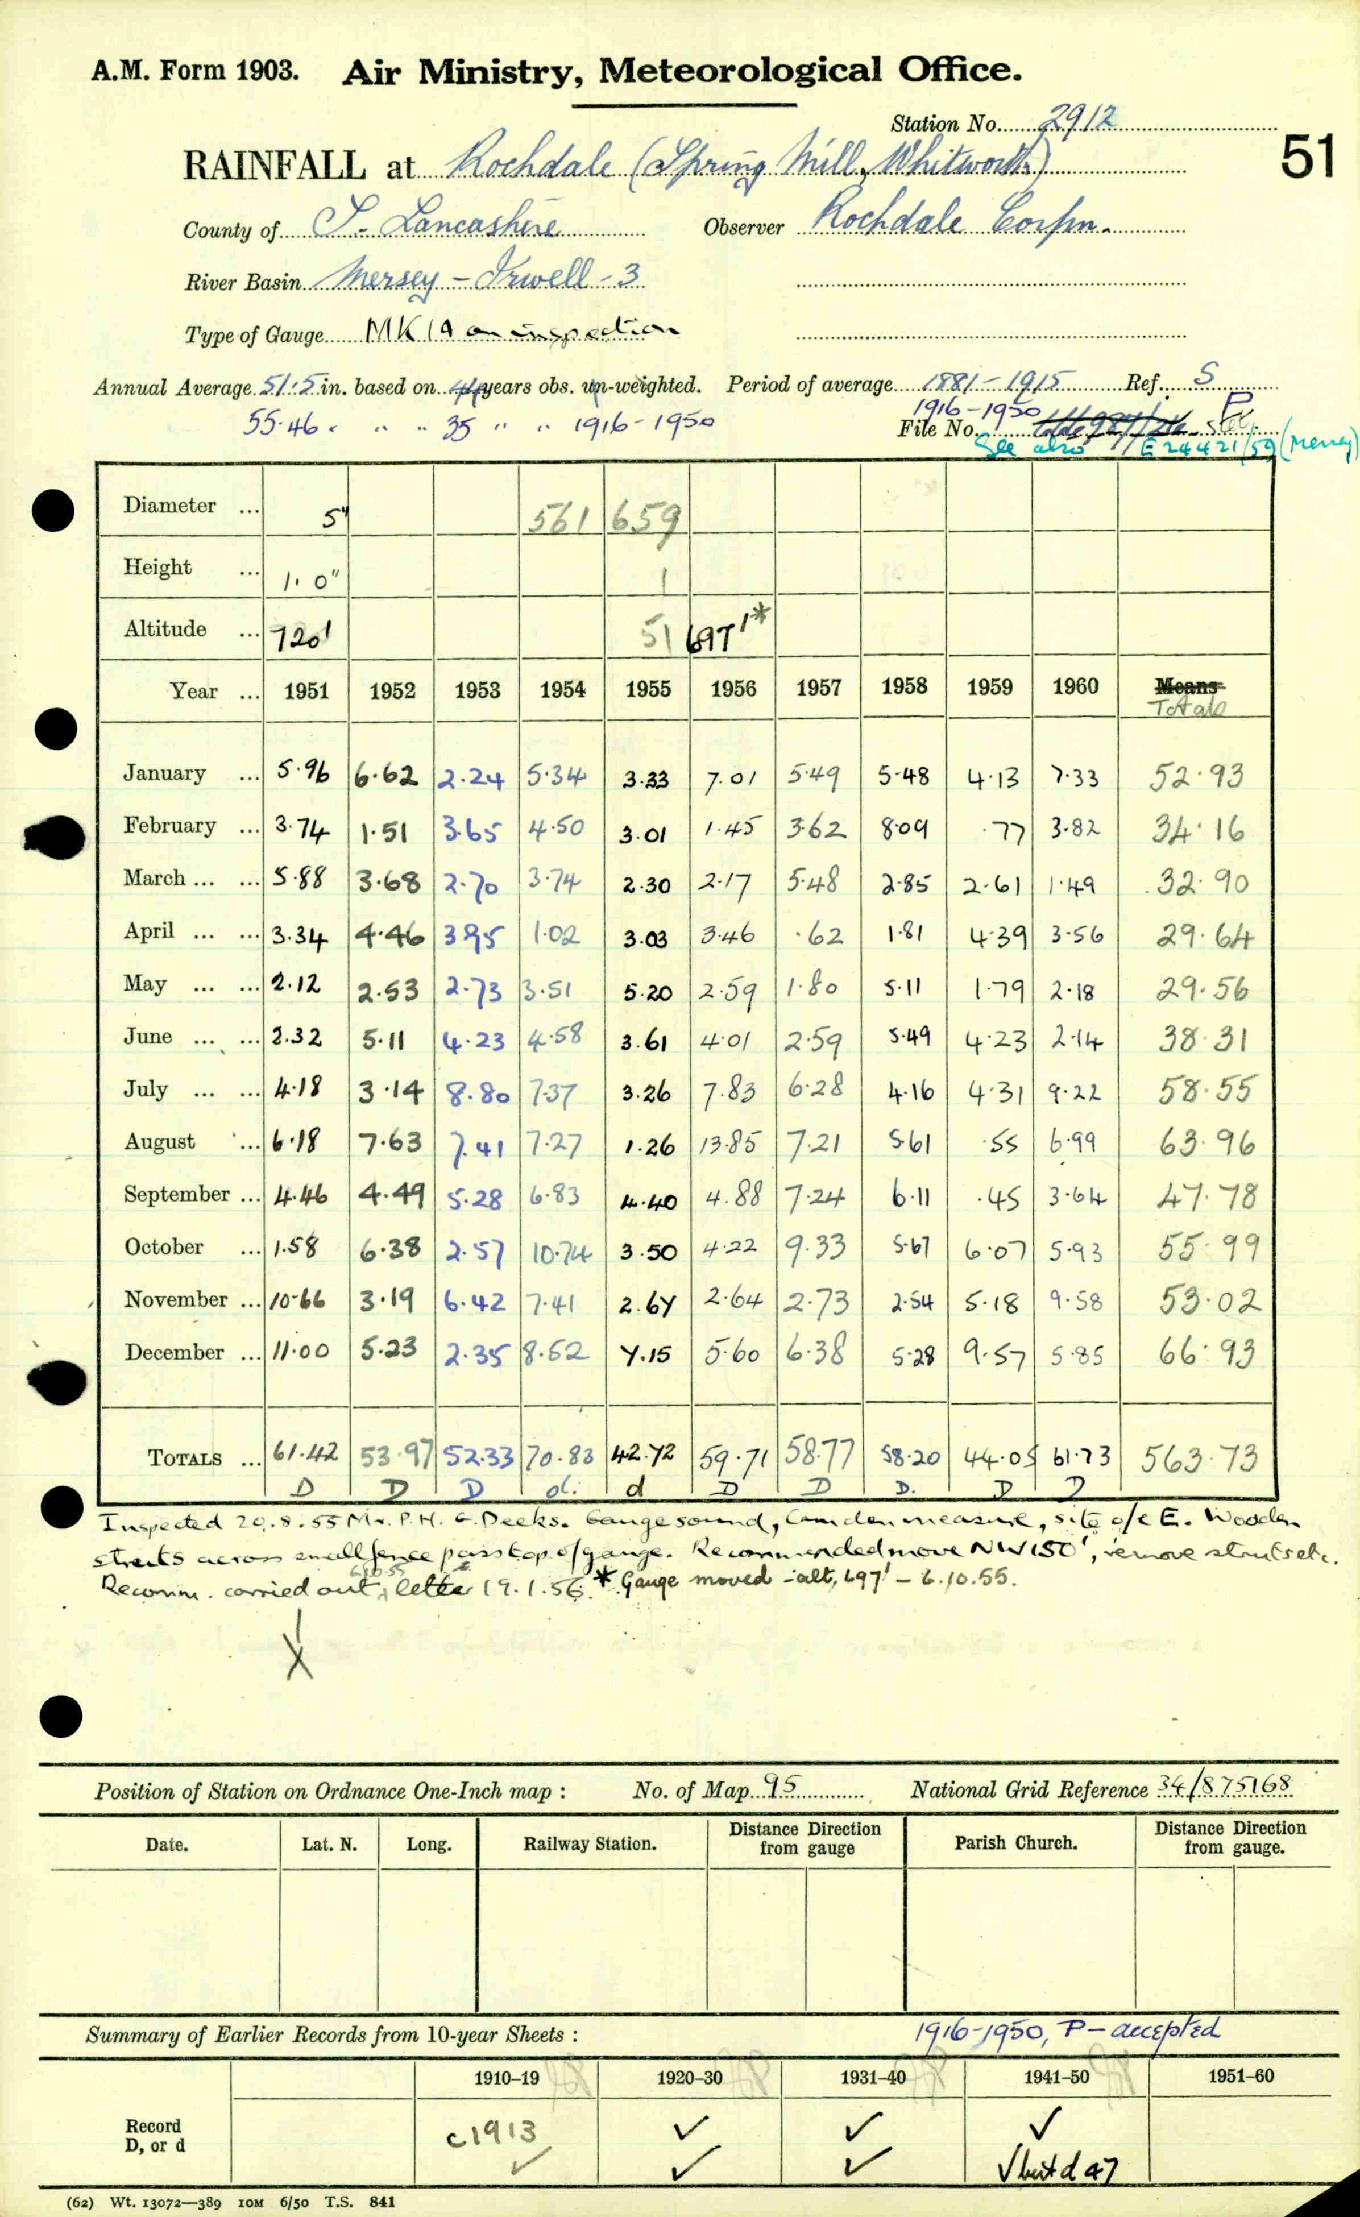 A.M. Form 1903. Air Ministry, Meteorological Office.
Station No. 2912
51
RAINFALL at Rochdale (Spring Mill, Whitworth)
County of S. Lancashire Observer Rochdale Corpn.
River Basin Mersey - Irwell - 3
Type of Gauge MK 1A on inspection
Annual Average 51.5 in. based on 44 years obs. un-weighted. Period of average 1881-1915 Ref. S
55.46 " " " 35 " " 1916-1950 1916-1950 P
File No.
See also E 24421/59 (Mersey)
Diameter ... 5" 561 659
Height ... 1' 0" 1
Altitude ... 720' 51 697' *
Year ... 1951 1952 1953 1954 1955 1956 1957 1958 1959 1960 Means
Totals
January ... 5.96 6.62 2.24 5.34 3.33 7.01 5.49 5.48 4.13 7.33 52.93
February ... 3.74 1.51 3.65 4.50 3.01 1.45 3.62 8.09 .77 3.82 34.16
March ... ... 5.88 3.68 2.70 3.74 2.30 2.17 5.48 2.85 2.61 1.49 32.90
April ... ... 3.34 4.46 3.95 1.02 3.03 3.46 .62 1.81 4.39 3.56 29.64
May ... ... 2.12 2.53 2.73 3.51 5.20 2.59 1.80 5.11 1.79 2.18 29.56
June ... ... 2.32 5.11 4.23 4.58 3.61 4.01 2.59 5.49 4.23 2.14 38.31
July ... ... 4.18 3.14 8.80 7.37 3.26 7.83 6.28 4.16 4.31 9.22 58.55
August ... 6.18 7.63 7.41 7.27 1.26 13.85 7.21 5.61 .55 6.99 63.96
September ... 4.46 4.49 5.28 6.83 4.40 4.88 7.24 6.11 .45 3.64 47.78
October ... 1.58 6.38 2.57 10.74 3.50 4.22 9.33 5.67 6.07 5.93 55.99
November ... 10.66 3.19 6.42 7.41 2.67 2.64 2.73 2.54 5.18 9.58 53.02
December ... 11.00 5.23 2.35 8.52 7.15 5.60 6.38 5.28 9.57 5.85 66.93
TOTALS ... 61.42 53.97 52.33 70.83 42.72 59.71 58.77 58.20 44.05 61.73 563.73
D D D d. d D D D. D D
Inspected 20.8.55 Mr. P.H. G. Deeks. Gauge sound, Camden measure, site o/c E. Wooden
struts across small fence pass top of gauge. Recommended move NW 150', remove struts etc.
Recomm. carried out 6.10.55, letter 19.1.56. * Gauge moved - alt, 697' - 6.10.55.
Position of Station on Ordnance One-Inch map : No. of Map 95 National Grid Reference 34/875168
Date. Lat. N. Long. Railway Station. Distance Direction from gauge Parish Church. Distance Direction from gauge.
Summary of Earlier Records from 10-year Sheets : 1916-1950, P - accepted
1910–19 1920–30 1931–40 1941–50 1951–60
Record c1913 ✓ ✓ ✓
D, or d ✓ ✓ ✓ ✓ but d 47
(62) Wt. 13072—389 10M 6/50 T.S. 841